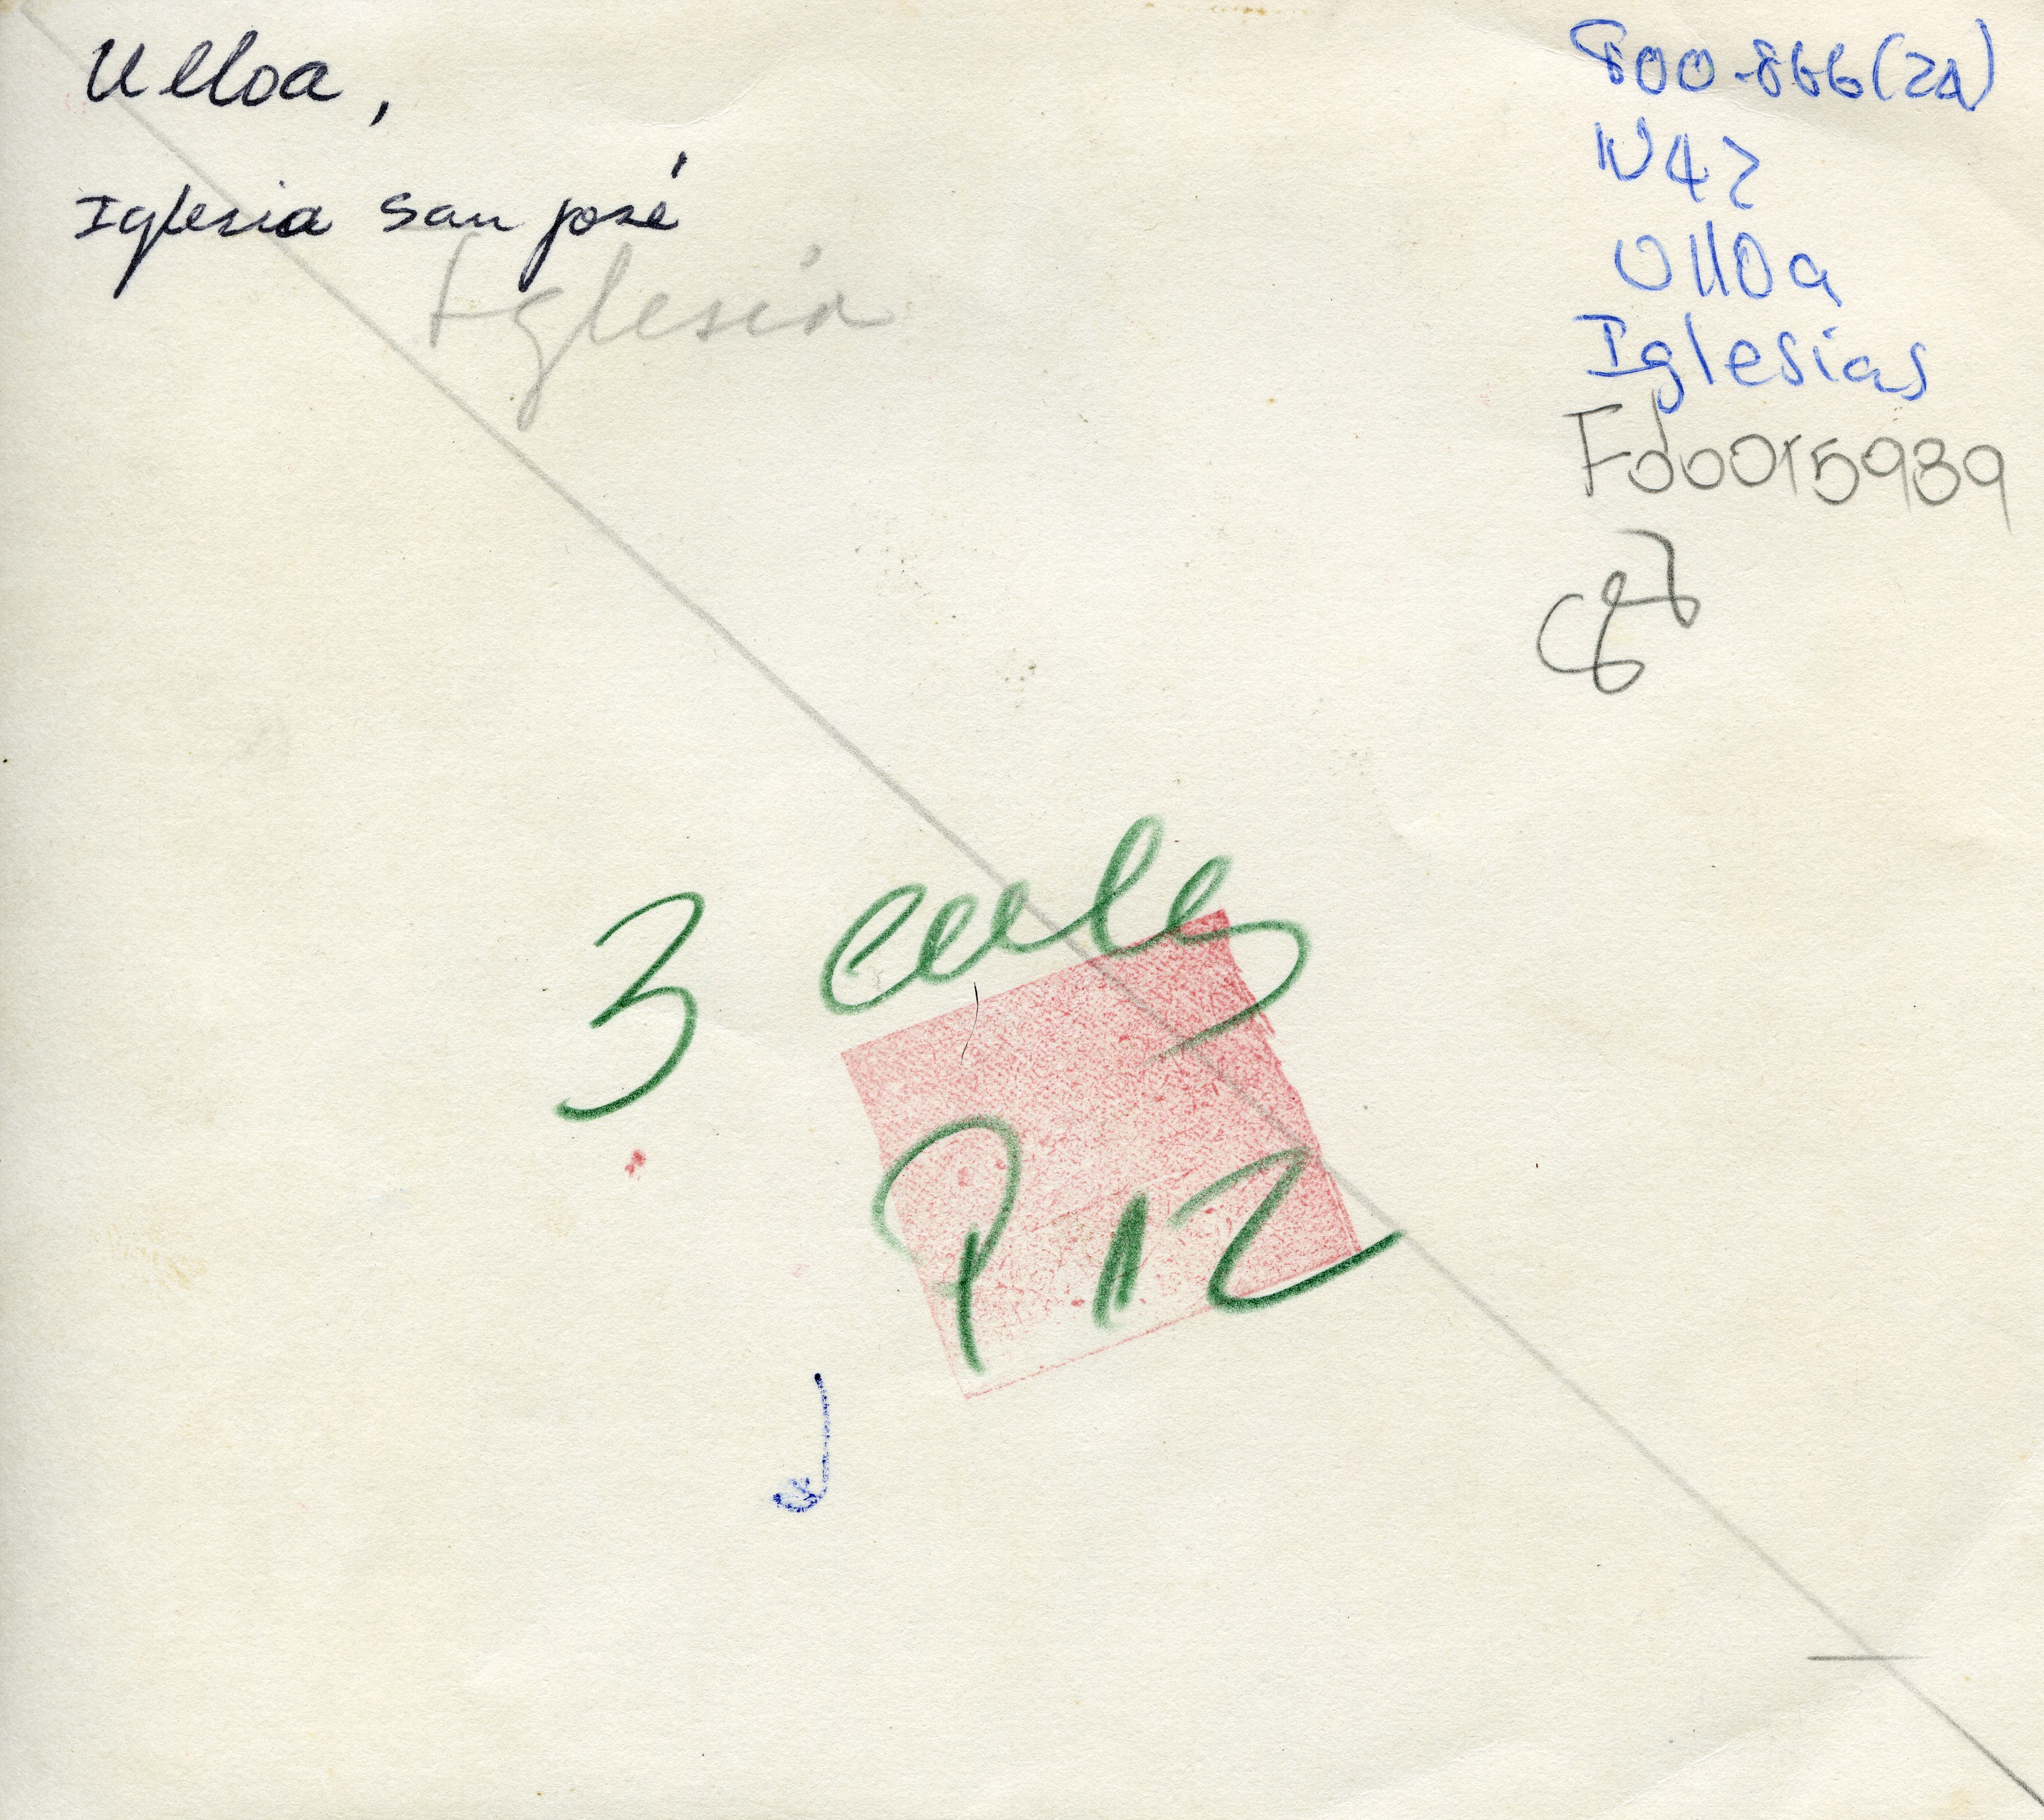 Ulloa,
Iglesia San José
Iglesia
800-866(2A)
N42
Ulloa
Iglesias
Fd0015939
3
P 12